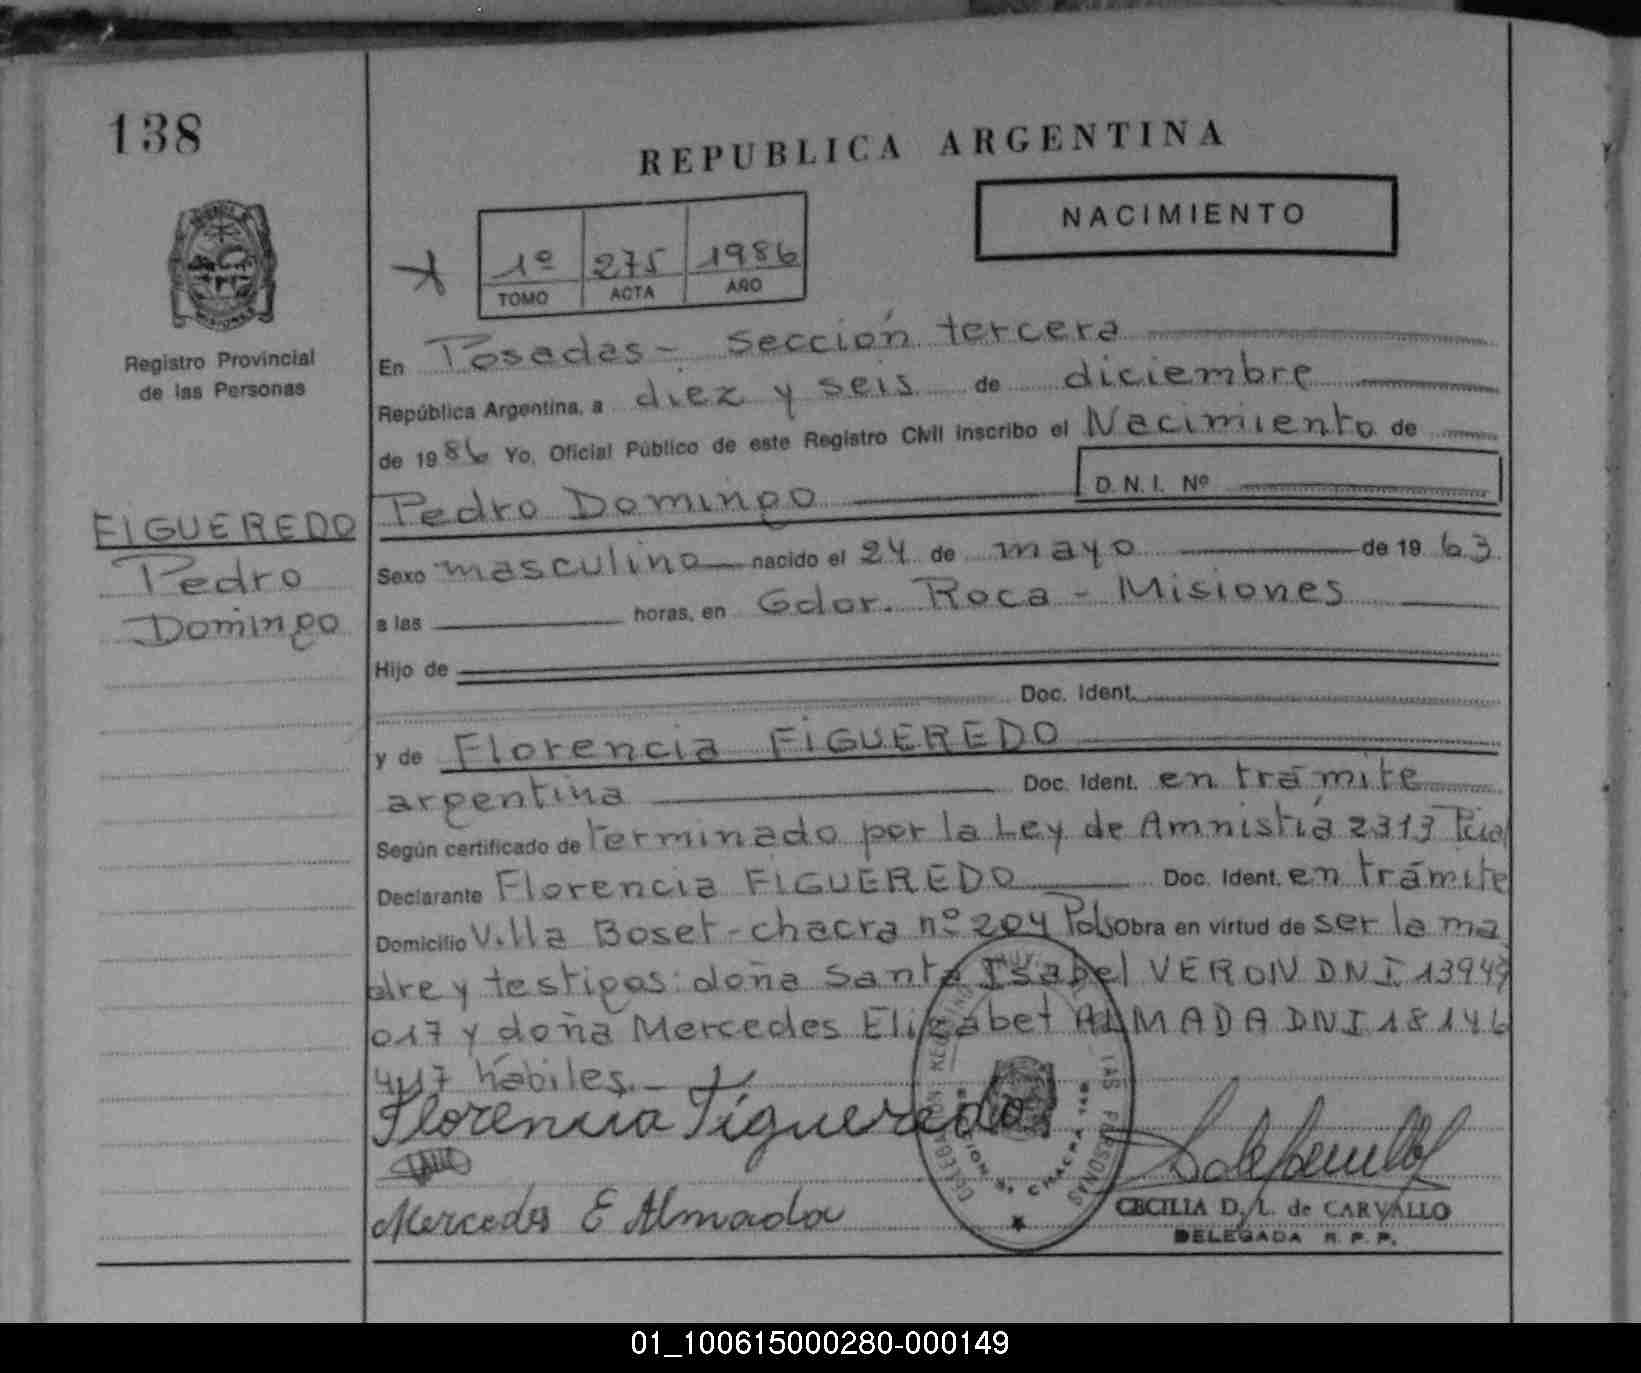 138
REPUBLICA ARGENTINA
NACIMIENTO
1º 275 1986
TOMO ACTA AÑO
Registro Provincial
de las Personas
En Posadas - Sección tercera
República Argentina, a diez y seis de diciembre
de 1986 Yo, Oficial Público de este Registro Civil inscribo el Nacimiento de
D. N. I. Nº
FIGUEREDO
Pedro
Domingo
Pedro Domingo
Sexo masculino nacido el 24 de mayo de 19 63
a las horas, en Gdor. Roca - Misiones
Hijo de
Doc. Ident.
y de Florencia FIGUEREDO
argentina Doc. Ident. en trámite
Según certificado de terminado por la Ley de Amnistía 2313 Pcial
Declarante Florencia FIGUEREDO Doc. Ident. en trámite
Domicilio Villa Boset - chacra nº 204 Pds Obra en virtud de ser la ma
dre y testigos: doña Santa Isabel VERON DNI 13949
017 y doña Mercedes Elizabet ALMADA DNI 18146
417 hábiles.-
Florencia Figueredo
Mercedes E Almada
CECILIA D. L. de CARVALLO
DELEGADA R. P. P.
01_100615000280-000149